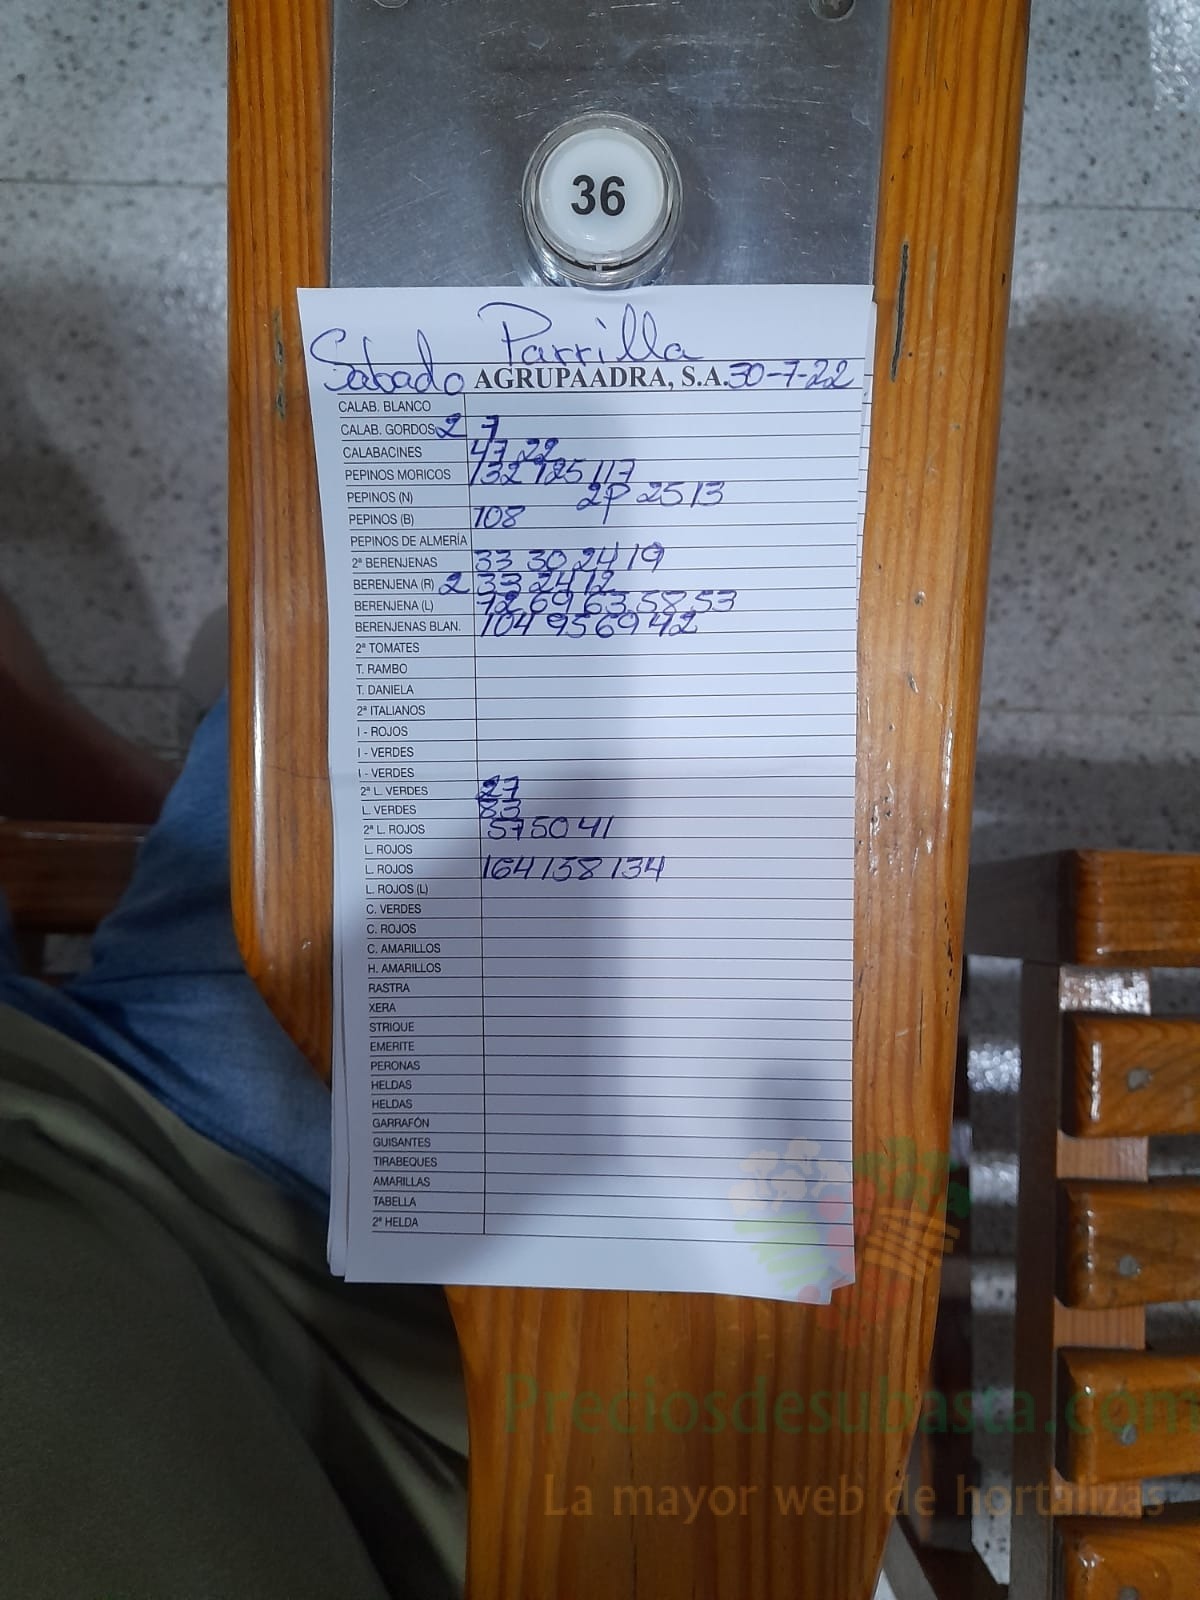 36
Parrilla
Sabado AGRUPAADRA, S.A. 30-7-22
CALAB. BLANCO
CALAB. GORDOS 2 7
CALABACINES 47 22
PEPINOS MORICOS 132 125 117
PEPINOS (N) 2P 25 13
PEPINOS (B) 108
PEPINOS DE ALMERÍA
2ª BERENJENAS 33 30 24 19
BERENJENA (R) 2 33 24 12
BERENJENA (L) 72 69 63 58 53
BERENJENAS BLAN. 104 95 69 42
2ª TOMATES
T. RAMBO
T. DANIELA
2ª ITALIANOS
I - ROJOS
I - VERDES
I - VERDES
2ª L. VERDES 27
L. VERDES 83
2ª L. ROJOS 57 50 41
L. ROJOS
L. ROJOS 164 158 134
L. ROJOS (L)
C. VERDES
C. ROJOS
C. AMARILLOS
H. AMARILLOS
RASTRA
XERA
STRIQUE
EMERITE
PERONAS
HELDAS
HELDAS
GARRAFÓN
GUISANTES
TIRABEQUES
AMARILLAS
TABELLA
2ª HELDA
Preciosdesubasta.com
La mayor web de hortalizas